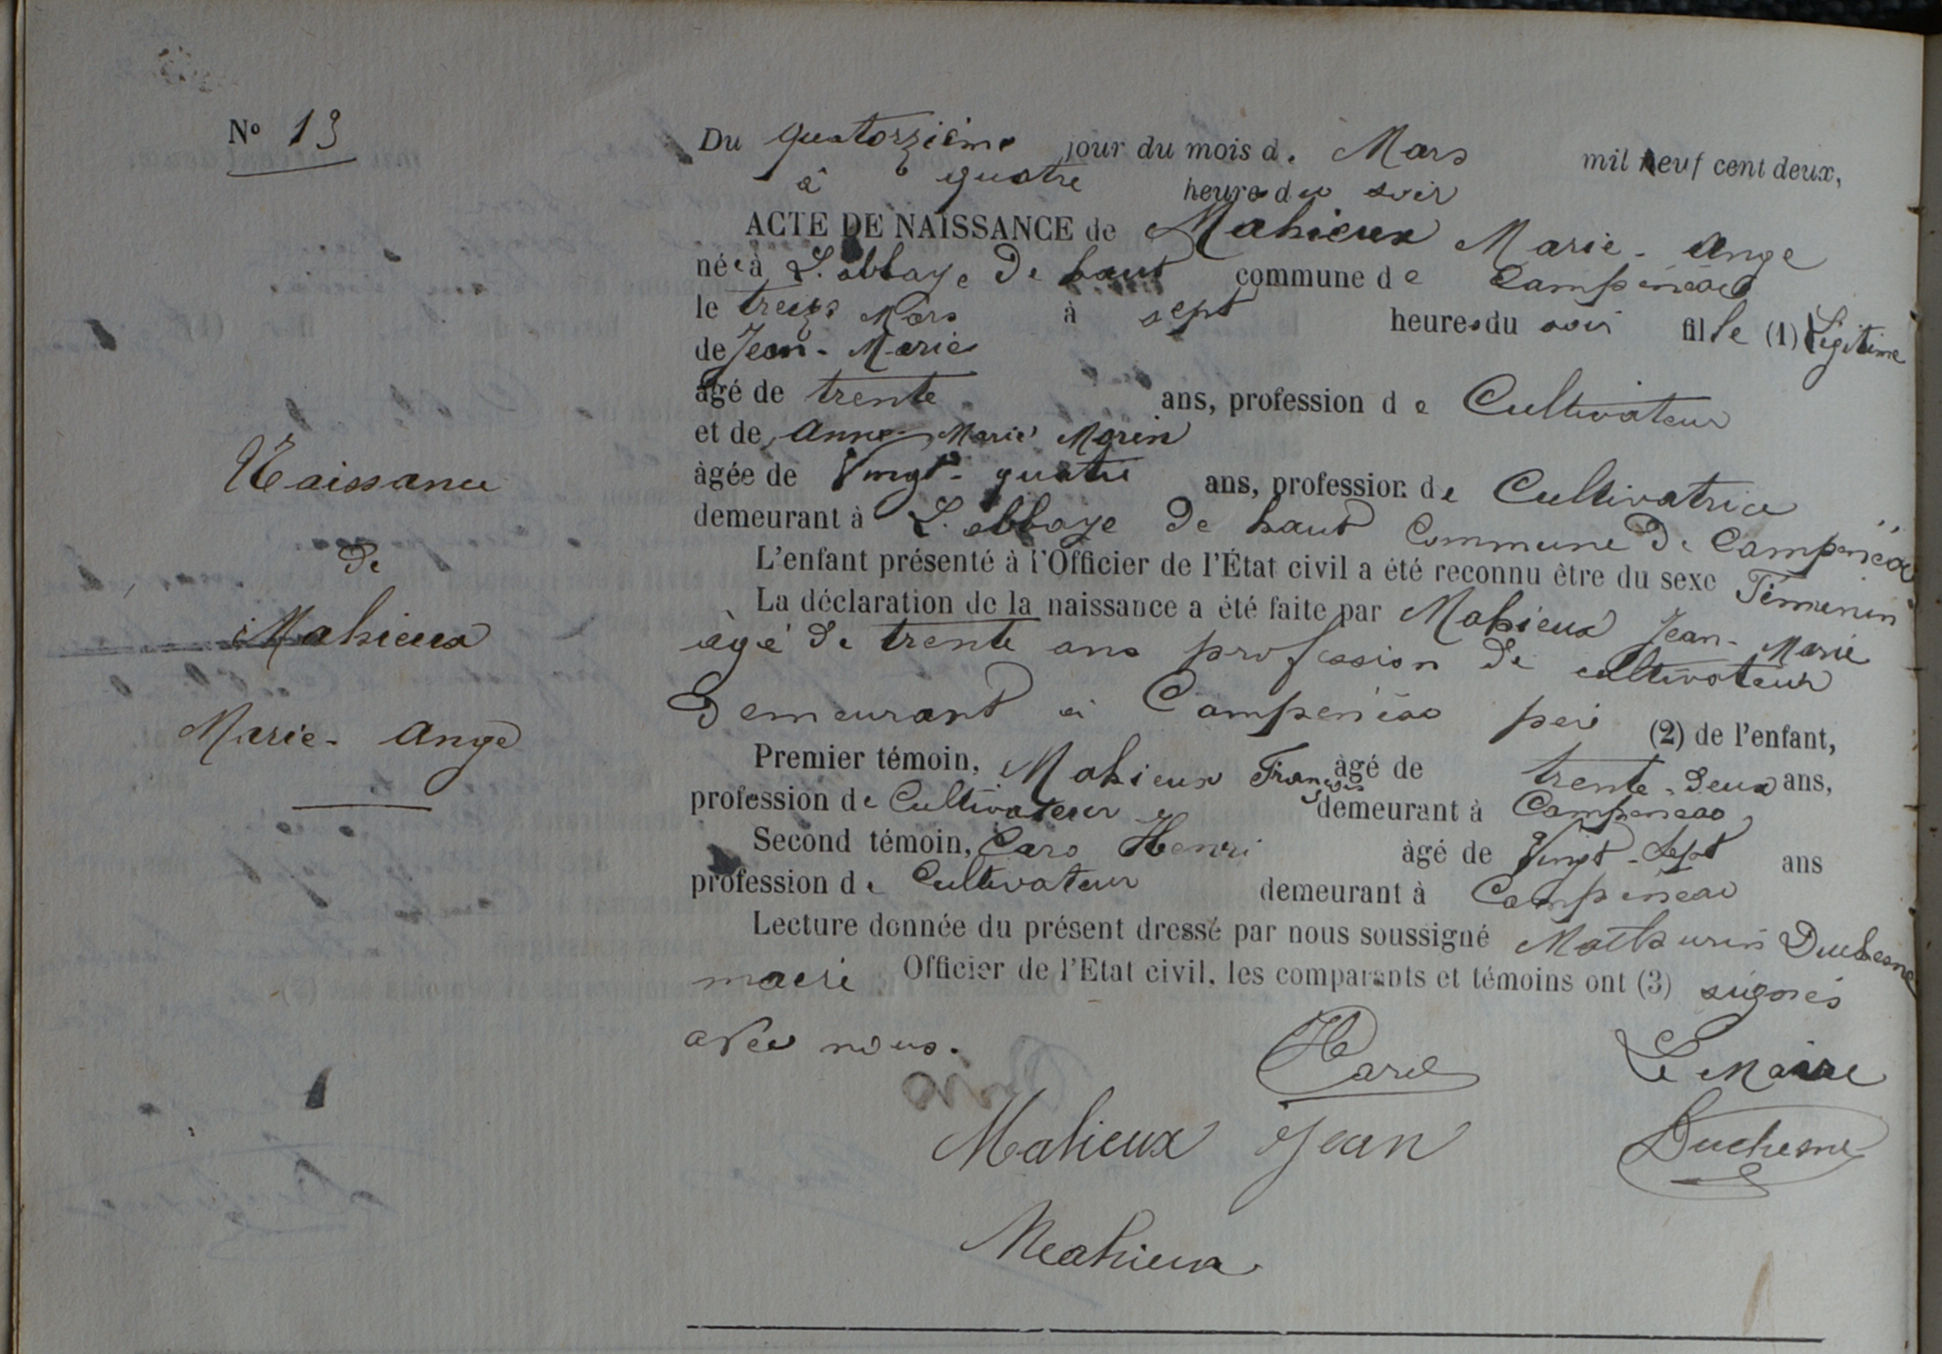 No 13
Naissance
de
Mahieux
Marie-Ange
Du quatorzième jour du mois de Mars mil neuf cent deux,
à quatre heures du soir
ACTE DE NAISSANCE de Mahieux Marie-Ange
née à L'abbaye de haut commune de Campénéac
le treize Mars à sept heures du soir fille (1) Légitime
de Jean-Marie
âgé de trente ans, profession de Cultivateur
et de Anne-Marie Morin
âgée de Vingt-quatre ans, profession de Cultivatrice
demeurant à L'abbaye de haut Commune de Campénéac
L'enfant présenté à l'Officier de l'État civil a été reconnu être du sexe Féminin
La déclaration de la naissance a été faite par Mahieux Jean-Marie
âgé de trente ans profession de cultivateur
Demeurant à Campénéac père (2) de l'enfant,
Premier témoin, Mahieux François âgé de trente-deux ans,
profession de Cultivateur demeurant à Campénéac
Second témoin, Caro Henri âgé de Vingt-Sept ans
profession de Cultivateur demeurant à Campénéac
Lecture donnée du présent dressé par nous soussigné Mathurin Duchesne
maire Officier de l'Etat civil, les comparants et témoins ont (3) signés
avec nous.
HCaro Le Maire
Mahieux Jean Duchesne
Mahieux